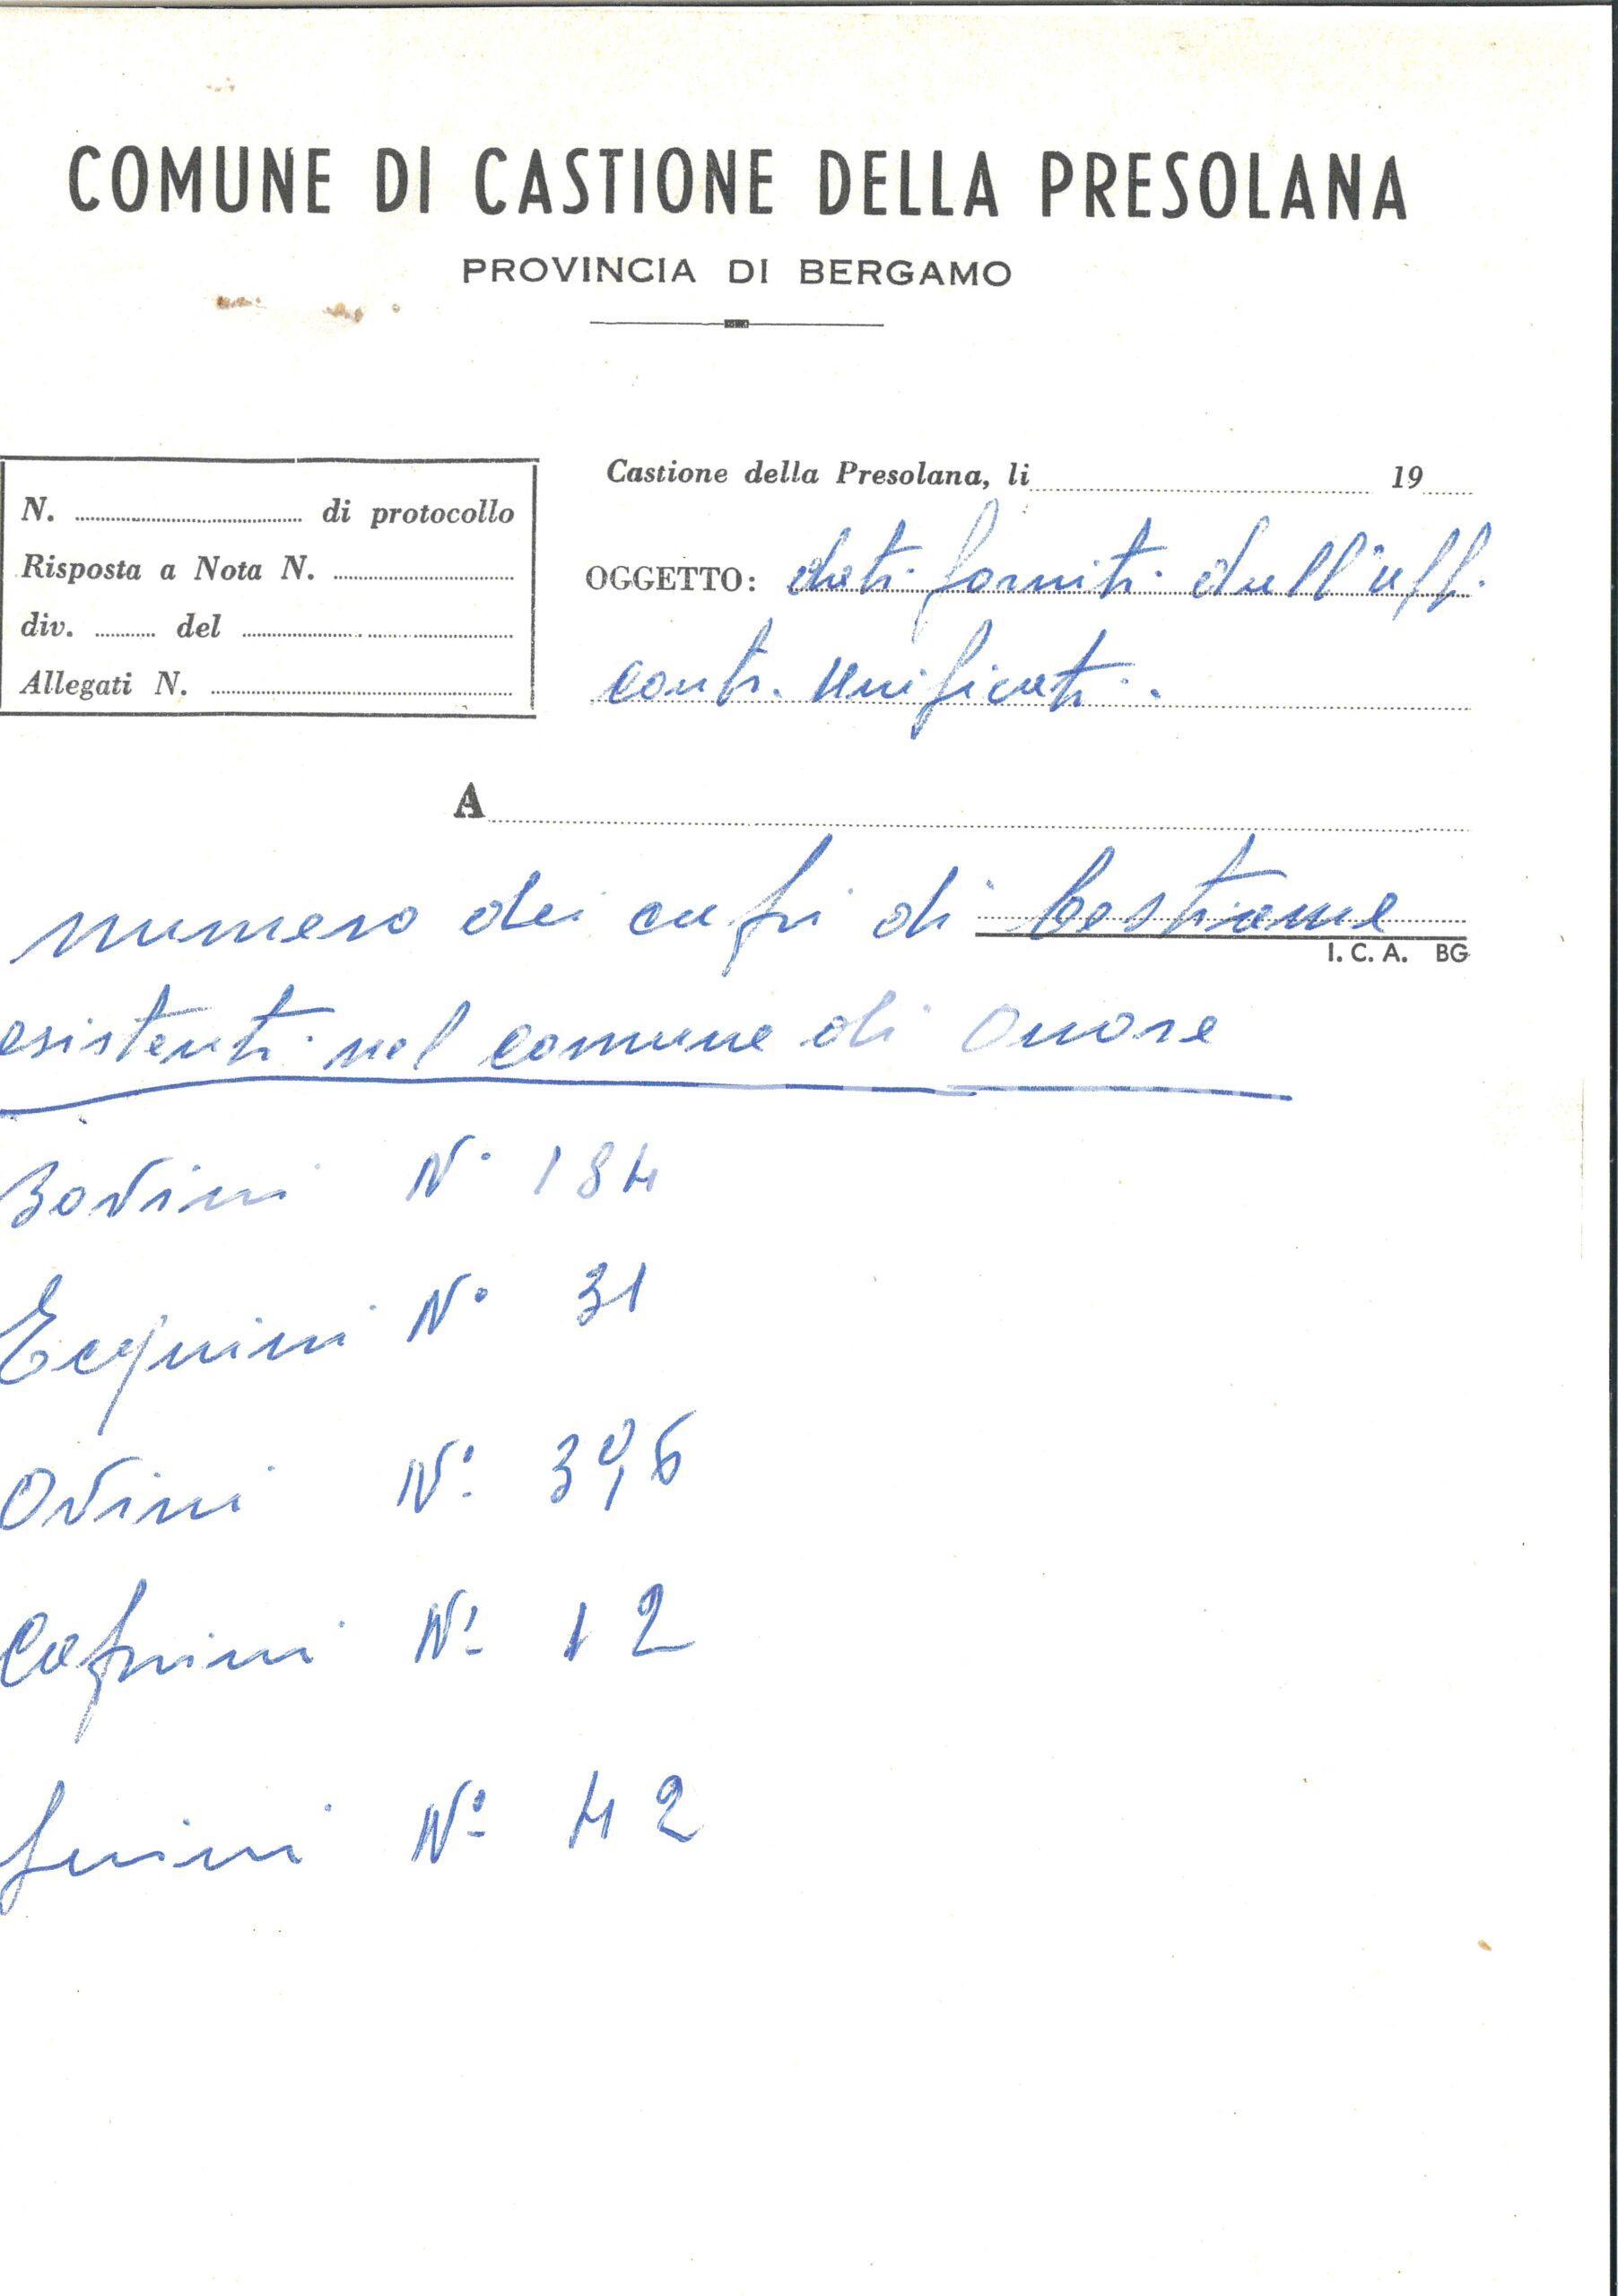 COMUNE DI CASTIONE DELLA PRESOLANA
PROVINCIA DI BERGAMO
N. di protocollo
Risposta a Nota N.
div. del
Allegati N.
Castione della Presolana, li 19
OGGETTO: dati forniti dall'uff.
contr. unificati.
A
numero dei capi di bestiame
I. C. A. BG
esistenti nel comune di Onore
Bovini N° 184
Equini N° 31
Ovini N° 396
Caprini N° 12
Suini N° 42